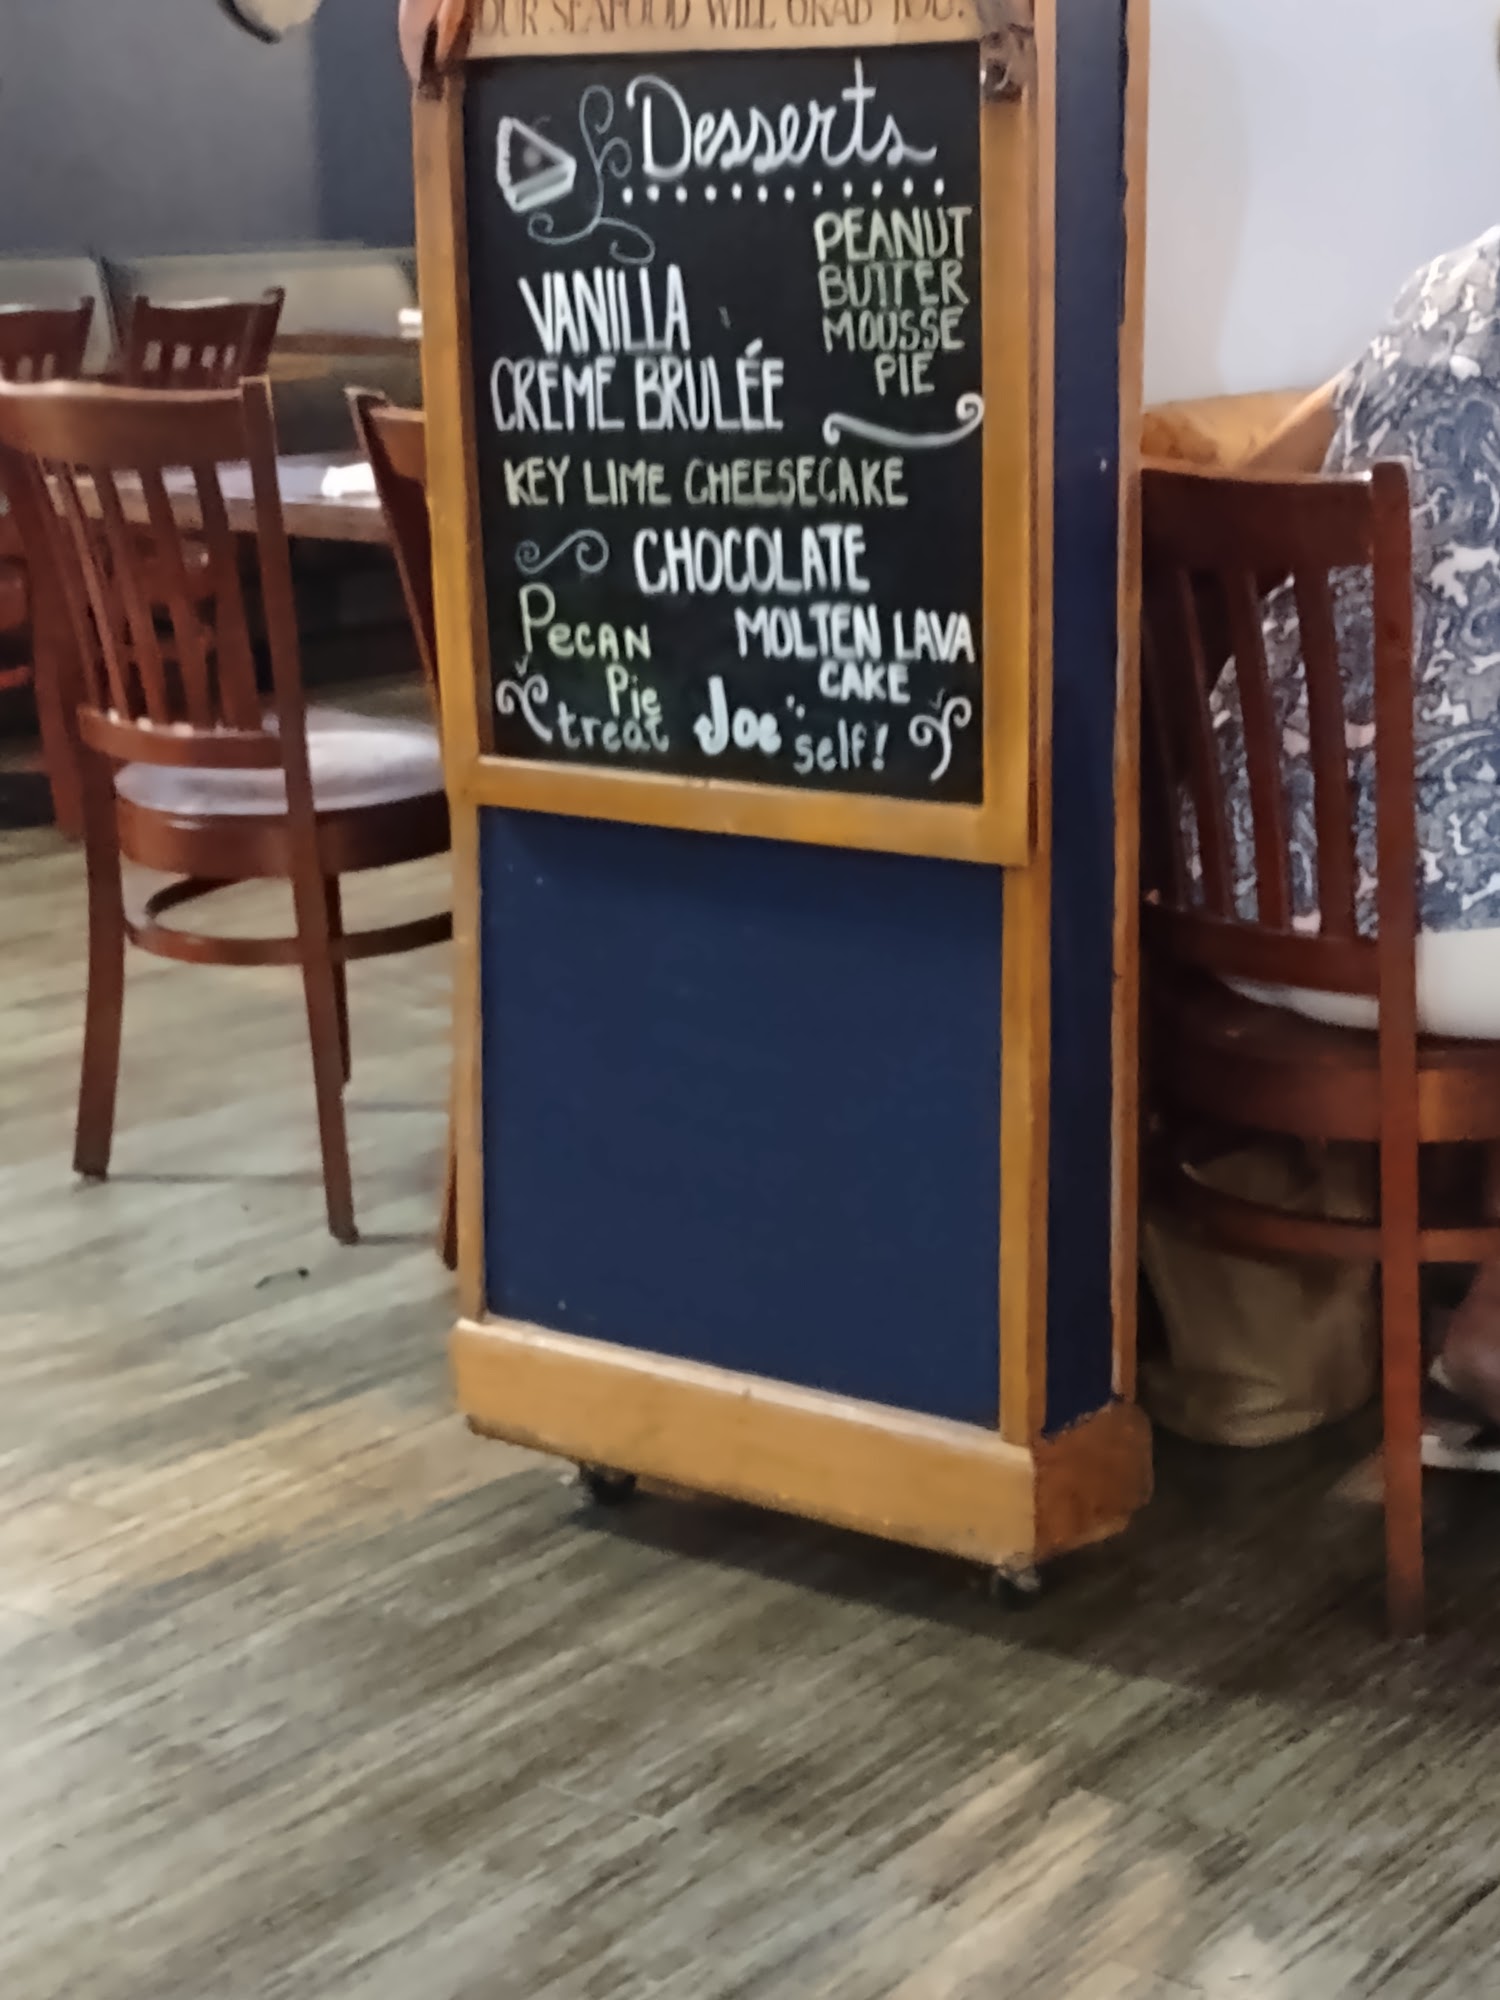 OUR SEAFOOD WILL GRAB YOU.
Desserts
PEANUT
BUTTER
MOUSSE
PIE
VANILLA
CREME BRULÉE
KEY LIME CHEESECAKE
CHOCOLATE
MOLTEN LAVA
CAKE
PECAN
Pie
treat Joe self!